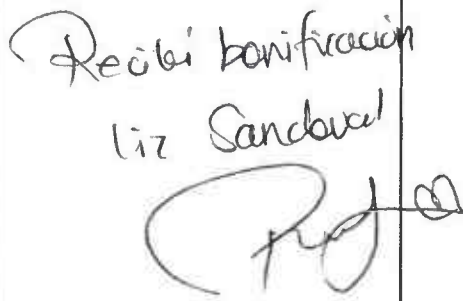 Recibi bonificación
liz Sandoval